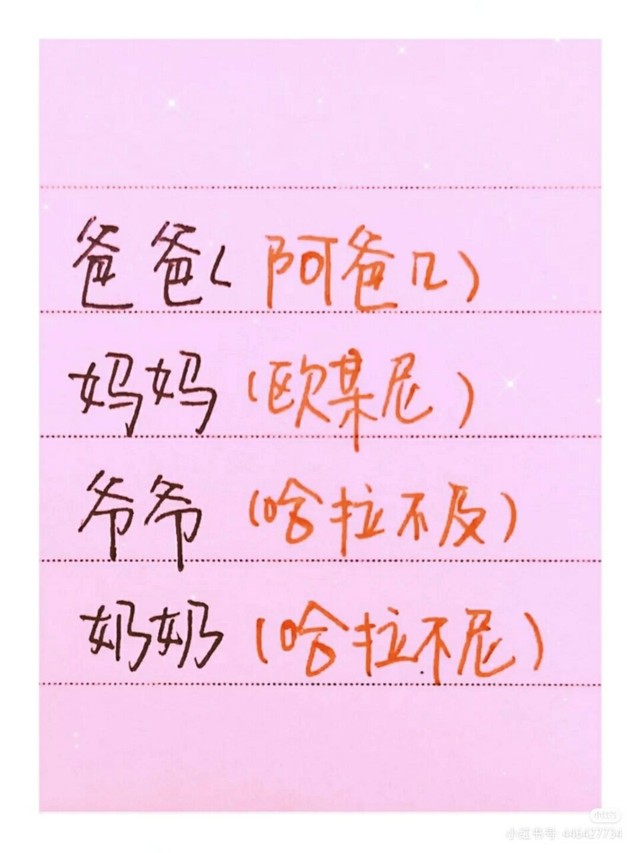 爸爸( 阿爸几)
妈妈(欧某尼)
爷爷(哈拉不及)
奶奶(哈拉不尼)
小红书
小红书号: 448427734